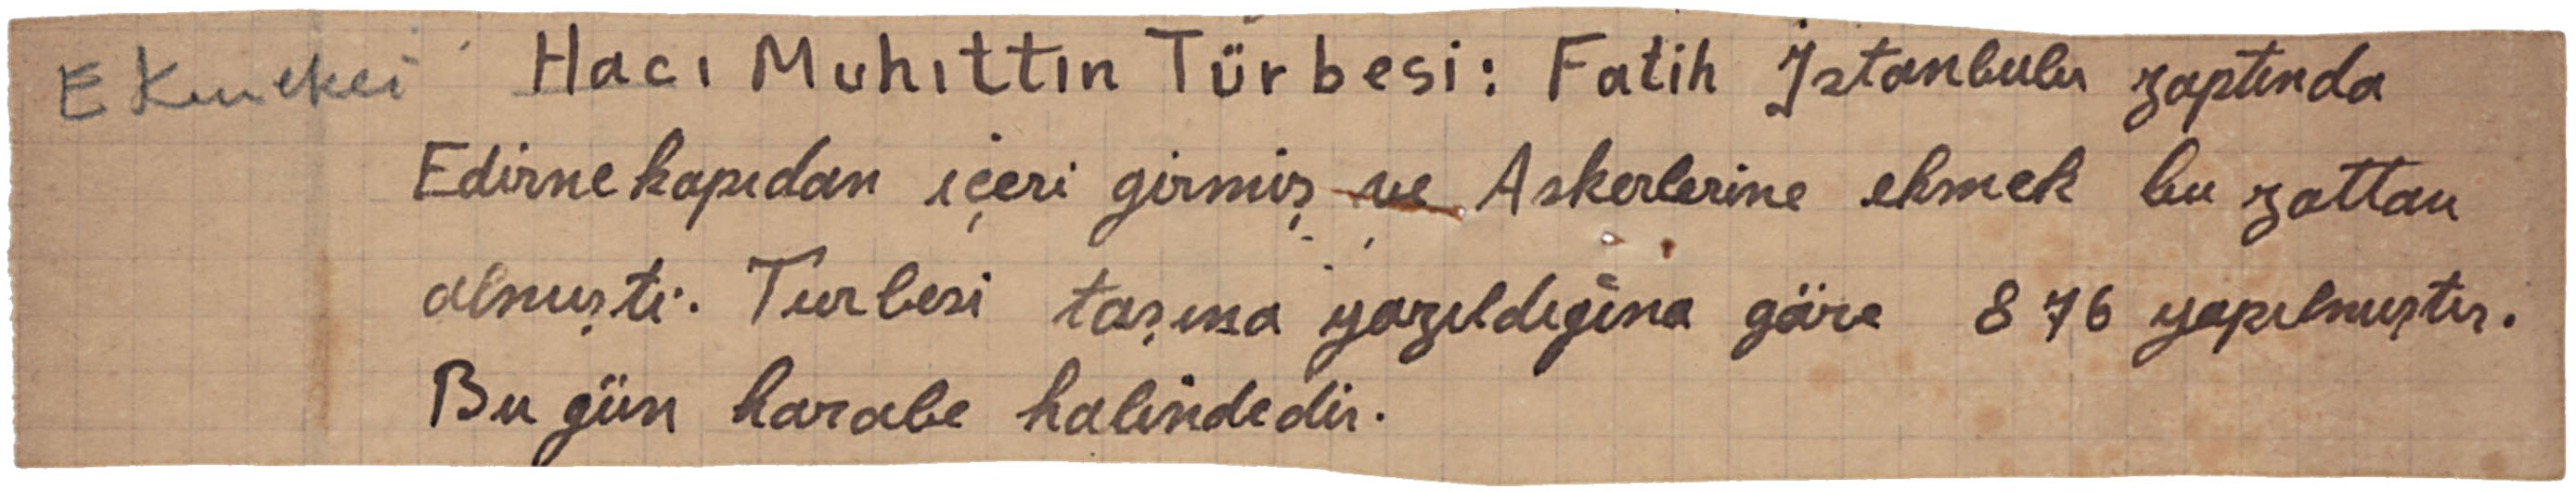 Ekmekci Hacı Muhıttın Türbesi: Fatih İstanbulu zaptında
Edirnekapıdan içeri girmiş ve Askerlerine ekmek bu zattan
almıştı. Turbesi taşına yazıldığına göre 876 yapılmıştır.
Bu gün harabe halindedir.